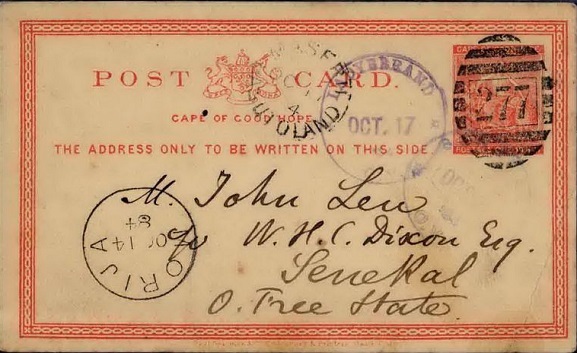 POST CARD.
CAPE OF GOOD HOPE
THE ADDRESS ONLY TO BE WRITTEN ON THIS SIDE
MASERU
BASUTOLAND
LADYBRAND
OCT. 17
277
ORIJA
OC 14
84
M. John Leu
W. H. C. Dixon Esq.
Senekal
O. Free State.